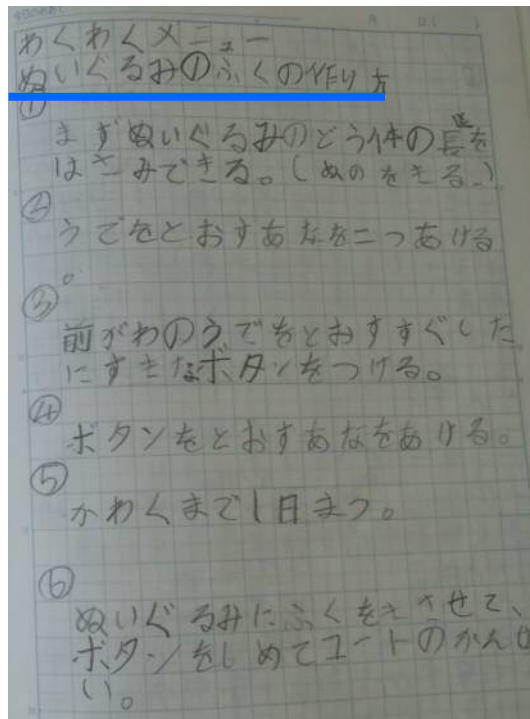 わくわくメニュー
ぬいぐるみのふくの作り方
①
まずぬいぐるみのどう体の長を
はさみできる。(ぬのをきる。)
②
うでをとおすあなを二つあける
。
③
前がわのうでをとおすすぐした
にすきなボタンをつける。
④
ボタンをとおすあなをあける。
⑤
かわくまで1日まつ。
⑥
ぬいぐるみにふくをきさせて、
ボタンをしめてコートのかんせ
い。